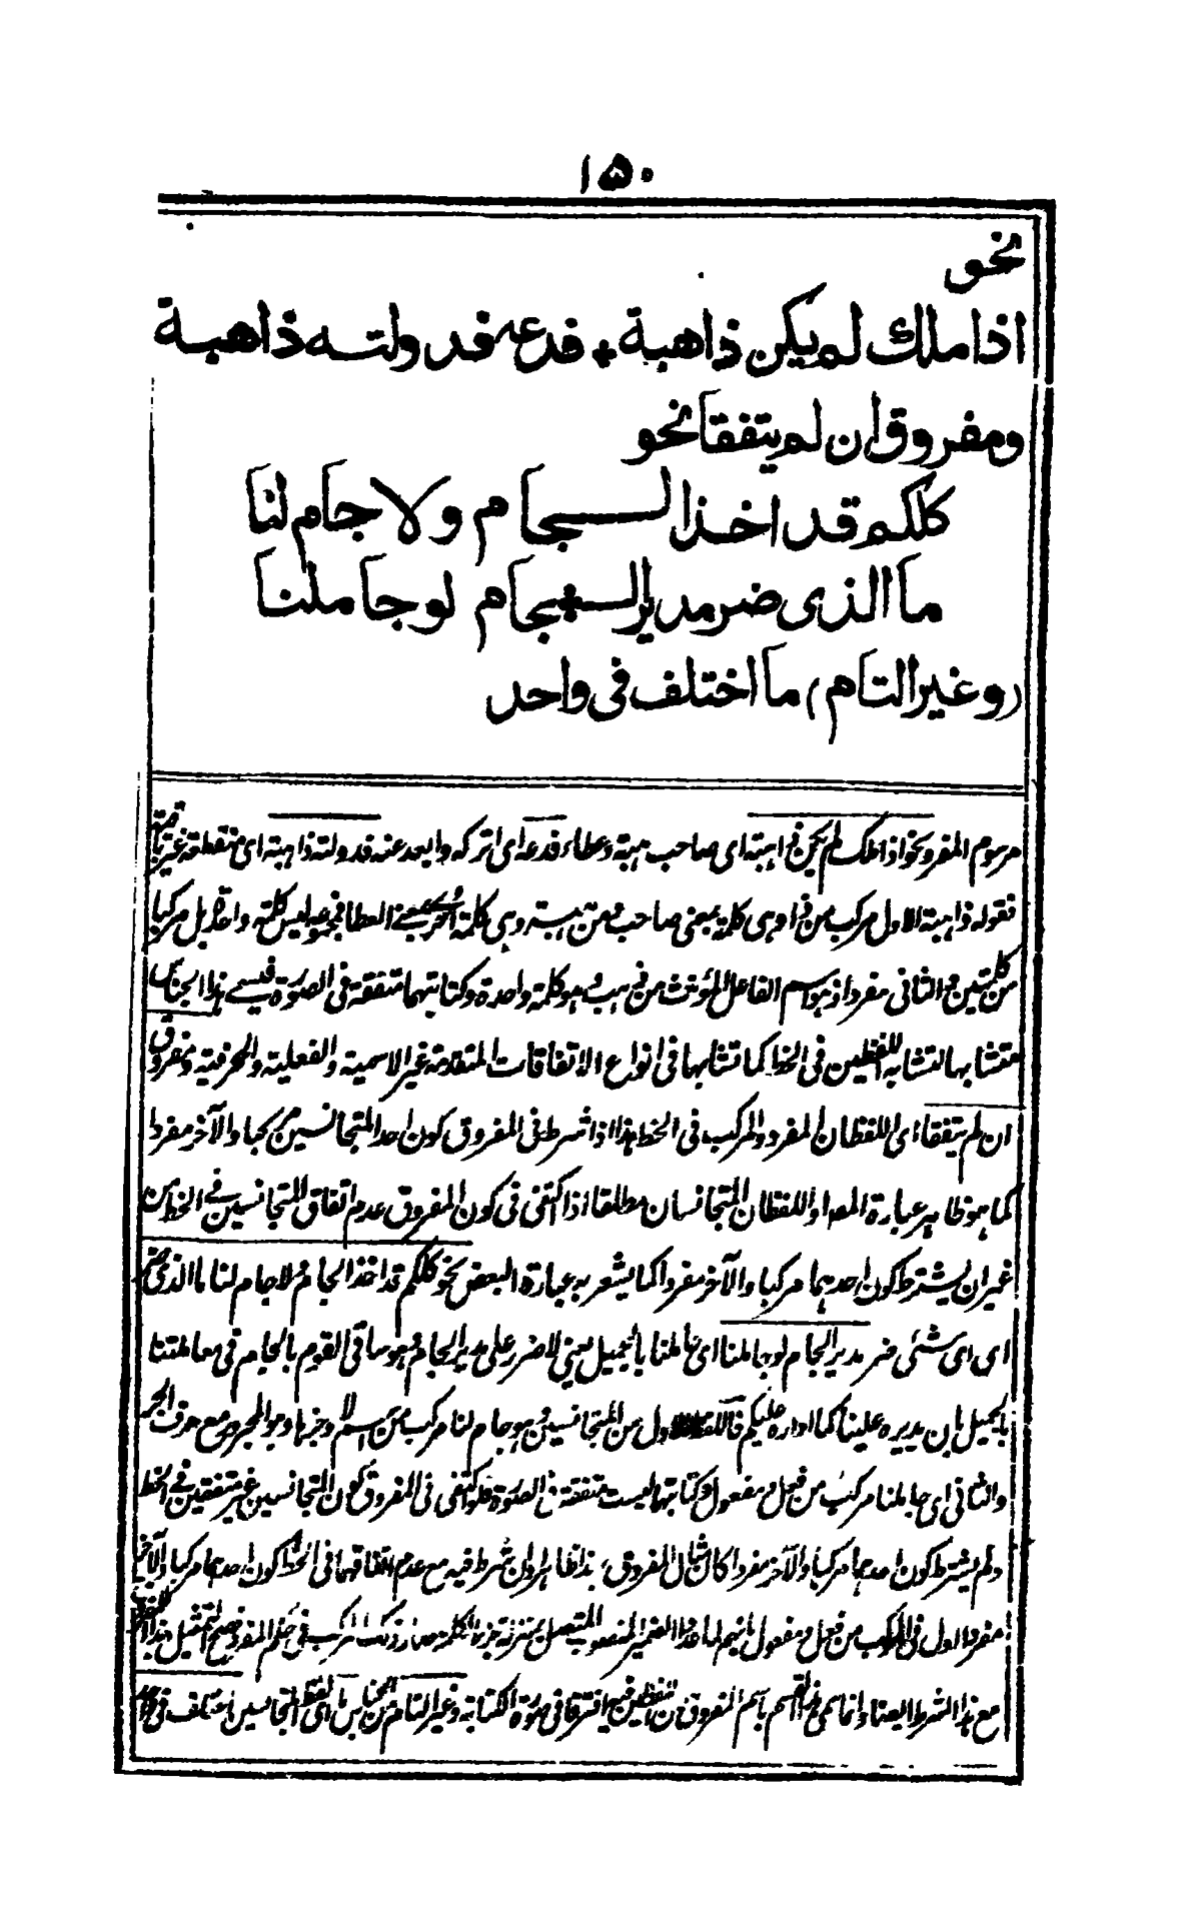 ١٥٠
نحو
اذا ملك لم يكن ذاهبة * فدعه فدولته ذاهبة
ومفروق ان لم يتفقا نحو
كلكم قد اخذ الجام ولا جام لنا
ما الذى ضر مدير الجام لو جاملنا
(وغير التام) ما اختلف فى واحد
مرسوم المفرد نحو اذا ملك لم يكن ذا هبة اى صاحب هبة وعطاء فدعه اى اتركه وابعد عنه فدولته ذاهبة اى منقطعة غير باقية
فقوله ذا هبة الاول مركب من ذا وهى كلمة بمعنى صاحب ومن هبة وهى كلمة اخرى بمعنى العطا فمجموعه ليس كلمة واحدة بل مركبا
من كلمتين والثانى مفرد اذ هو اسم الفاعل المؤنث من ذهب وهو كلمة واحدة وكتابتهما متفقة فى الصورة فيسمى هذا الجناس
متشابها لتشابه اللفظين فى الخط كما تشابها فى انواع الاتفاقات المتقدمة غير الاسمية والفعلية والحرفية ومفروق
ان لم يتفقا اى اللفظان المفرد والمركب فى الخط هذا اذا شرط فى المفروق كون احد المتجانسين مركبا والآخر مفردا
كما هو ظاهر عبارة المص او اللفظان المتجانسان مطلقا اذا اكتفى فى كون المفروق عدم اتفاق المتجانسين فى الخط من
غير ان يشترط كون احدهما مركبا والآخر مفردا كما يشعر به عبارة البعض نحو كلكم قد اخذ الجام ولا جام لنا ما الذى ضر
اى اى شئ ضر مدير الجام لو جاملنا اى عاملنا بالجميل يعنى لا ضرر على مدير الجام وهو ساقى القوم بالجام فى معاملتنا
بالجميل بان يديره علينا كما اداره عليكم فاللفظ الاول من المتجانسين وهو جام لنا مركب من اسم لا وخبرها وهو المجرور مع حرف الجر
والثانى اى جاملنا مركب من فعل ومفعول وكتابتهما ليست متفقة فى الصورة فلو اكتفى فى المفروق كون المتجانسين غير متفقين فى الخط
ولم يشترط كون احدهما مركبا والآخر مفردا كان مثال المفروق هذا ظاهرا ولو شرط فيه مع عدم اتفاقهما فى الخط كون احدهما مركبا والآخر
مفردا من فعل ومفعول المنصوب المتصل بمنزلة جزء الكلمة صار ذلك المركب فى حكم المفرد فصح التمثيل بهذا
مع هذا الشرط ايضا وانما سمى هذا القسم باسم المفروق لان اللفظين فيه افترقا فى صورة الكتابة وغير التام من الجناس ما اى اللفظ المتجانسين اختلف فى واحد